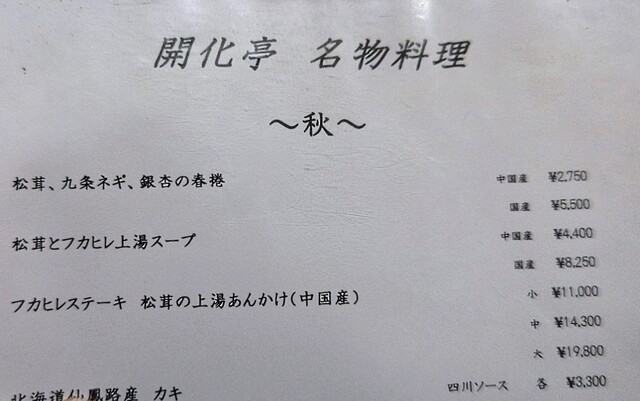 開化亭 名物料理
～秋～
松茸、九条ネギ、銀杏の春捲 中国産 ¥2,750
国産 ¥5,500
松茸とフカヒレ上湯スープ 中国産 ¥4,400
国産 ¥8,250
フカヒレステーキ 松茸の上湯あんかけ(中国産) 小 ¥11,000
中 ¥14,300
大 ¥19,800
北海道仙鳳路産 カキ 四川ソース 各 ¥3,300